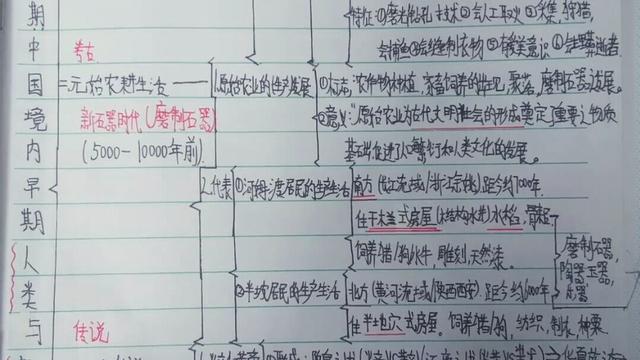 特征:①磨光钻孔技术 ②会人工取火 ③采集,狩猎,
会捕鱼 ④会缝制衣物 ⑤有爱美意识 ⑥
期
中
国
境
内
早
期
人
类
与
考古
二、原始农耕生活
新石器时代(磨制石器)
(5000-10000年前)
传说
1.原始农业的生产发展
①标志:农作物种植,家畜饲养的出现,聚落,磨制石器发展。
②意义:"原始农业为古代文明社会的形成奠定了重要之物质
基础,促进了人口繁衍和人类文化的发展。
2.代表
①河姆渡居民的生产生活
南方(长江流域/浙江余姚)距今约7000年.
住干栏式房屋(木结构水井)水稻,骨耜
饲养猪/狗/水牛,雕刻,天然漆。
②半坡居民的生产生活
北方(黄河流域/陕西西安)距今约6000年
住半地穴式房屋。饲养猪/狗,纺织,制衣,种粟
磨制石器,
陶器,玉器,